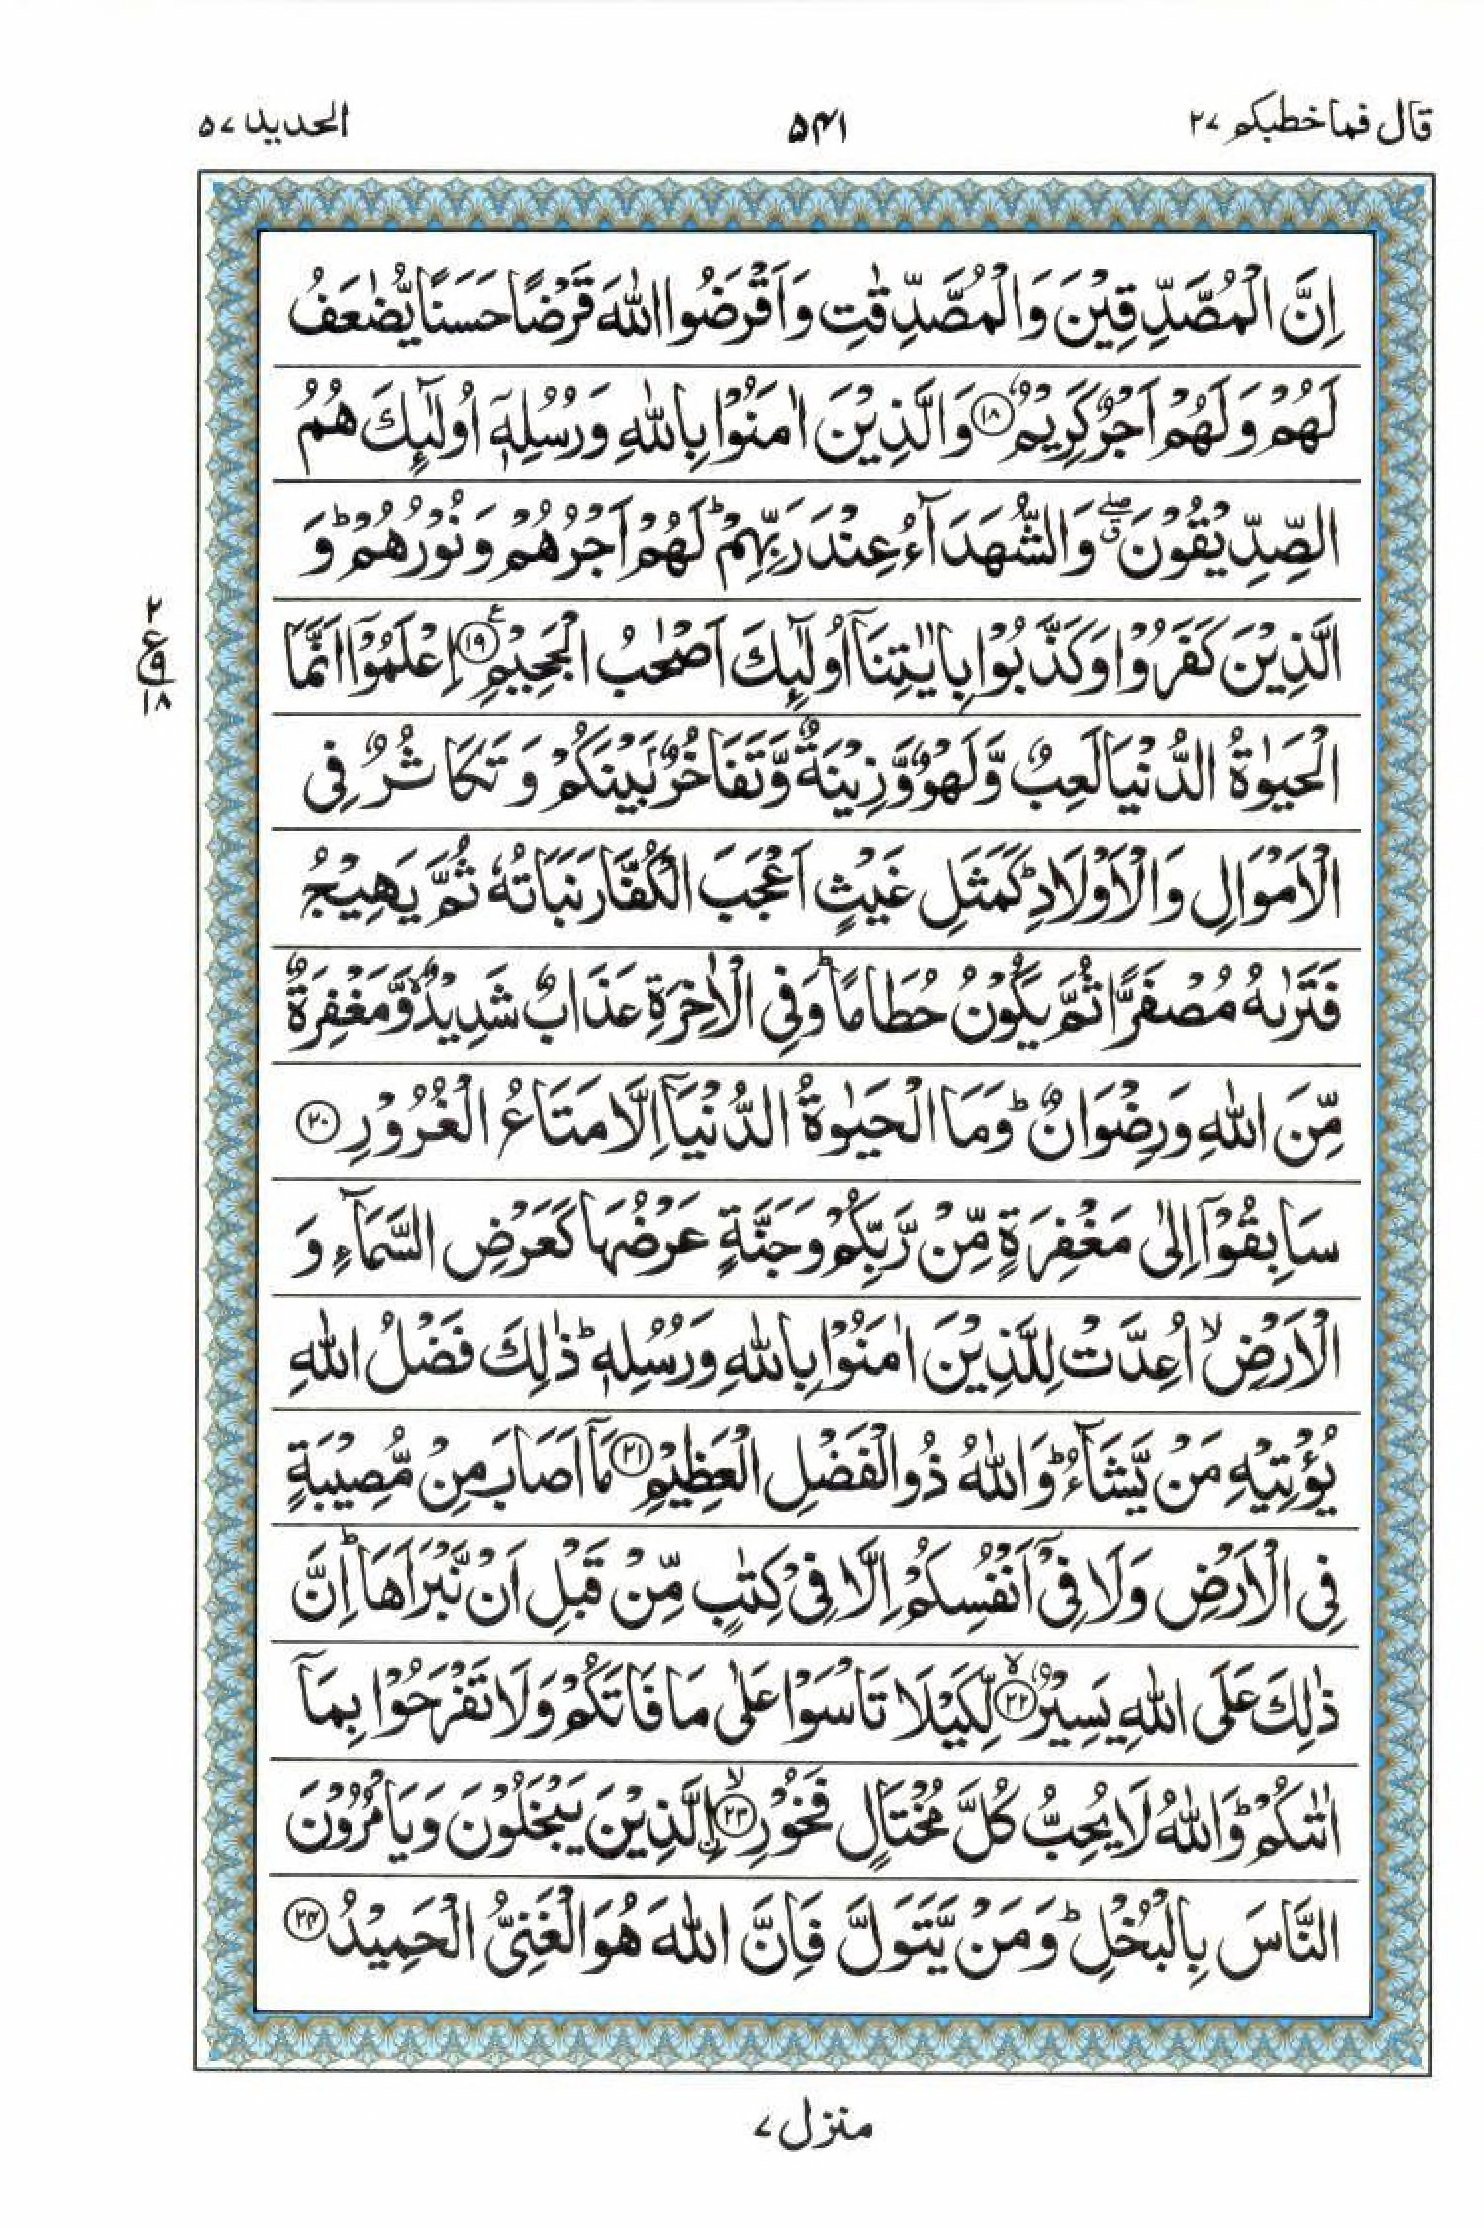 قال فما خطبکم ۲۷
۵۴۱
الحدید ۵۷
اِنَّ الْمُصَّدِّقِیْنَ وَالْمُصَّدِّقٰتِ وَاَقْرَضُوا اللّٰهَ قَرْضًا حَسَنًا یُّضٰعَفُ
لَهُمْ وَلَهُمْ اَجْرٌ كَرِیْمٌ ۱۸ وَالَّذِیْنَ اٰمَنُوْا بِاللّٰهِ وَرُسُلِهٖۤ اُولٰٓىِٕكَ هُمُ
الصِّدِّیْقُوْنَ ۖۗ وَالشُّهَدَآءُ عِنْدَ رَبِّهِمْ ؕ لَهُمْ اَجْرُهُمْ وَنُوْرُهُمْ ؕ وَ
الَّذِیْنَ كَفَرُوْا وَكَذَّبُوْا بِاٰیٰتِنَاۤ اُولٰٓىِٕكَ اَصْحٰبُ الْجَحِیْمِ ۱۹ اِعْلَمُوْۤا اَنَّمَا
الْحَیٰوةُ الدُّنْیَا لَعِبٌ وَّلَهْوٌ وَّزِیْنَةٌ وَّتَفَاخُرٌۢ بَیْنَكُمْ وَتَكَاثُرٌ فِی
الْاَمْوَالِ وَالْاَوْلَادِ ؕ كَمَثَلِ غَیْثٍ اَعْجَبَ الْكُفَّارَ نَبَاتُهٗ ثُمَّ یَهِیْجُ
فَتَرٰىهُ مُصْفَرًّا ثُمَّ یَكُوْنُ حُطَامًا ؕ وَفِی الْاٰخِرَةِ عَذَابٌ شَدِیْدٌ ۙ وَّمَغْفِرَةٌ
مِّنَ اللّٰهِ وَرِضْوَانٌ ؕ وَمَا الْحَیٰوةُ الدُّنْیَاۤ اِلَّا مَتَاعُ الْغُرُوْرِ ۲۰
سَابِقُوْۤا اِلٰی مَغْفِرَةٍ مِّنْ رَّبِّكُمْ وَجَنَّةٍ عَرْضُهَا كَعَرْضِ السَّمَآءِ وَ
الْاَرْضِ ۙ اُعِدَّتْ لِلَّذِیْنَ اٰمَنُوْا بِاللّٰهِ وَرُسُلِهٖ ؕ ذٰلِكَ فَضْلُ اللّٰهِ
یُؤْتِیْهِ مَنْ یَّشَآءُ ؕ وَاللّٰهُ ذُو الْفَضْلِ الْعَظِیْمِ ۲۱ مَاۤ اَصَابَ مِنْ مُّصِیْبَةٍ
فِی الْاَرْضِ وَلَا فِیْۤ اَنْفُسِكُمْ اِلَّا فِیْ كِتٰبٍ مِّنْ قَبْلِ اَنْ نَّبْرَاَهَا ؕ اِنَّ
ذٰلِكَ عَلَی اللّٰهِ یَسِیْرٌ ۲۲ ۙ لِّكَیْلَا تَاْسَوْا عَلٰی مَا فَاتَكُمْ وَلَا تَفْرَحُوْا بِمَاۤ
اٰتٰىكُمْ ؕ وَاللّٰهُ لَا یُحِبُّ كُلَّ مُخْتَالٍ فَخُوْرِ ۲۳ ۙ ࣙالَّذِیْنَ یَبْخَلُوْنَ وَیَاْمُرُوْنَ
النَّاسَ بِالْبُخْلِ ؕ وَمَنْ یَّتَوَلَّ فَاِنَّ اللّٰهَ هُوَ الْغَنِیُّ الْحَمِیْدُ ۲۴
۲
ع
۹
۱۸
منزل ۷